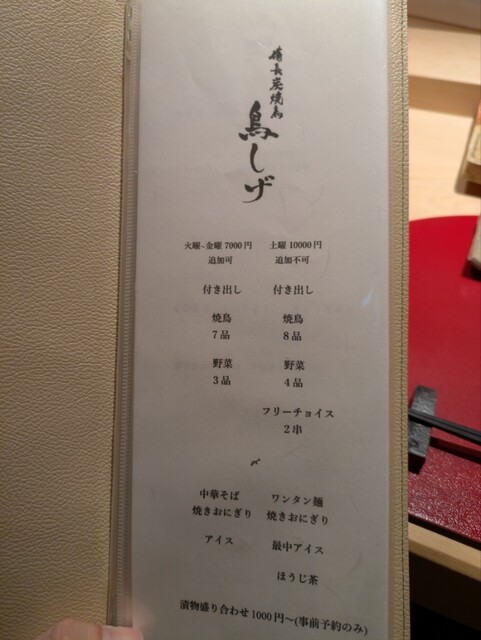 備長炭焼鳥
鳥しげ
火曜~金曜 7000円
追加可
付き出し
焼鳥
7品
野菜
3品
土曜 10000円
追加不可
付き出し
焼鳥
8品
野菜
4品
フリーチョイス
2串
〆
中華そば
焼きおにぎり
アイス
ワンタン麺
焼きおにぎり
最中アイス
ほうじ茶
漬物盛り合わせ1000円〜(事前予約のみ)